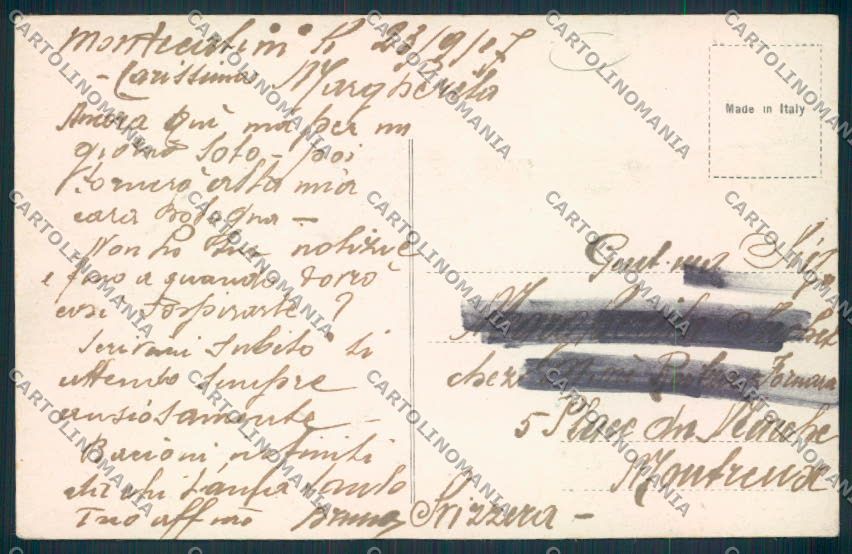 Montecatini li 23/9/17
- Carissima Margherita
Ancora qui ma per un
giorno solo - poi
tornerò alla mia
cara Bologna -
Non ho tue notizie
e fino a quando dovrò
così sospirarle?
Scrivimi subito ti
attendo sempre
ansiosamente -
Bacioni infiniti
da chi t'ama tanto
Tuo aff.mo Bruno
Made in Italy
Gent.ma Sig
chez
Fornara
5 Place du Marché
Montreux
Svizzera -
CARTOLINOMANIA